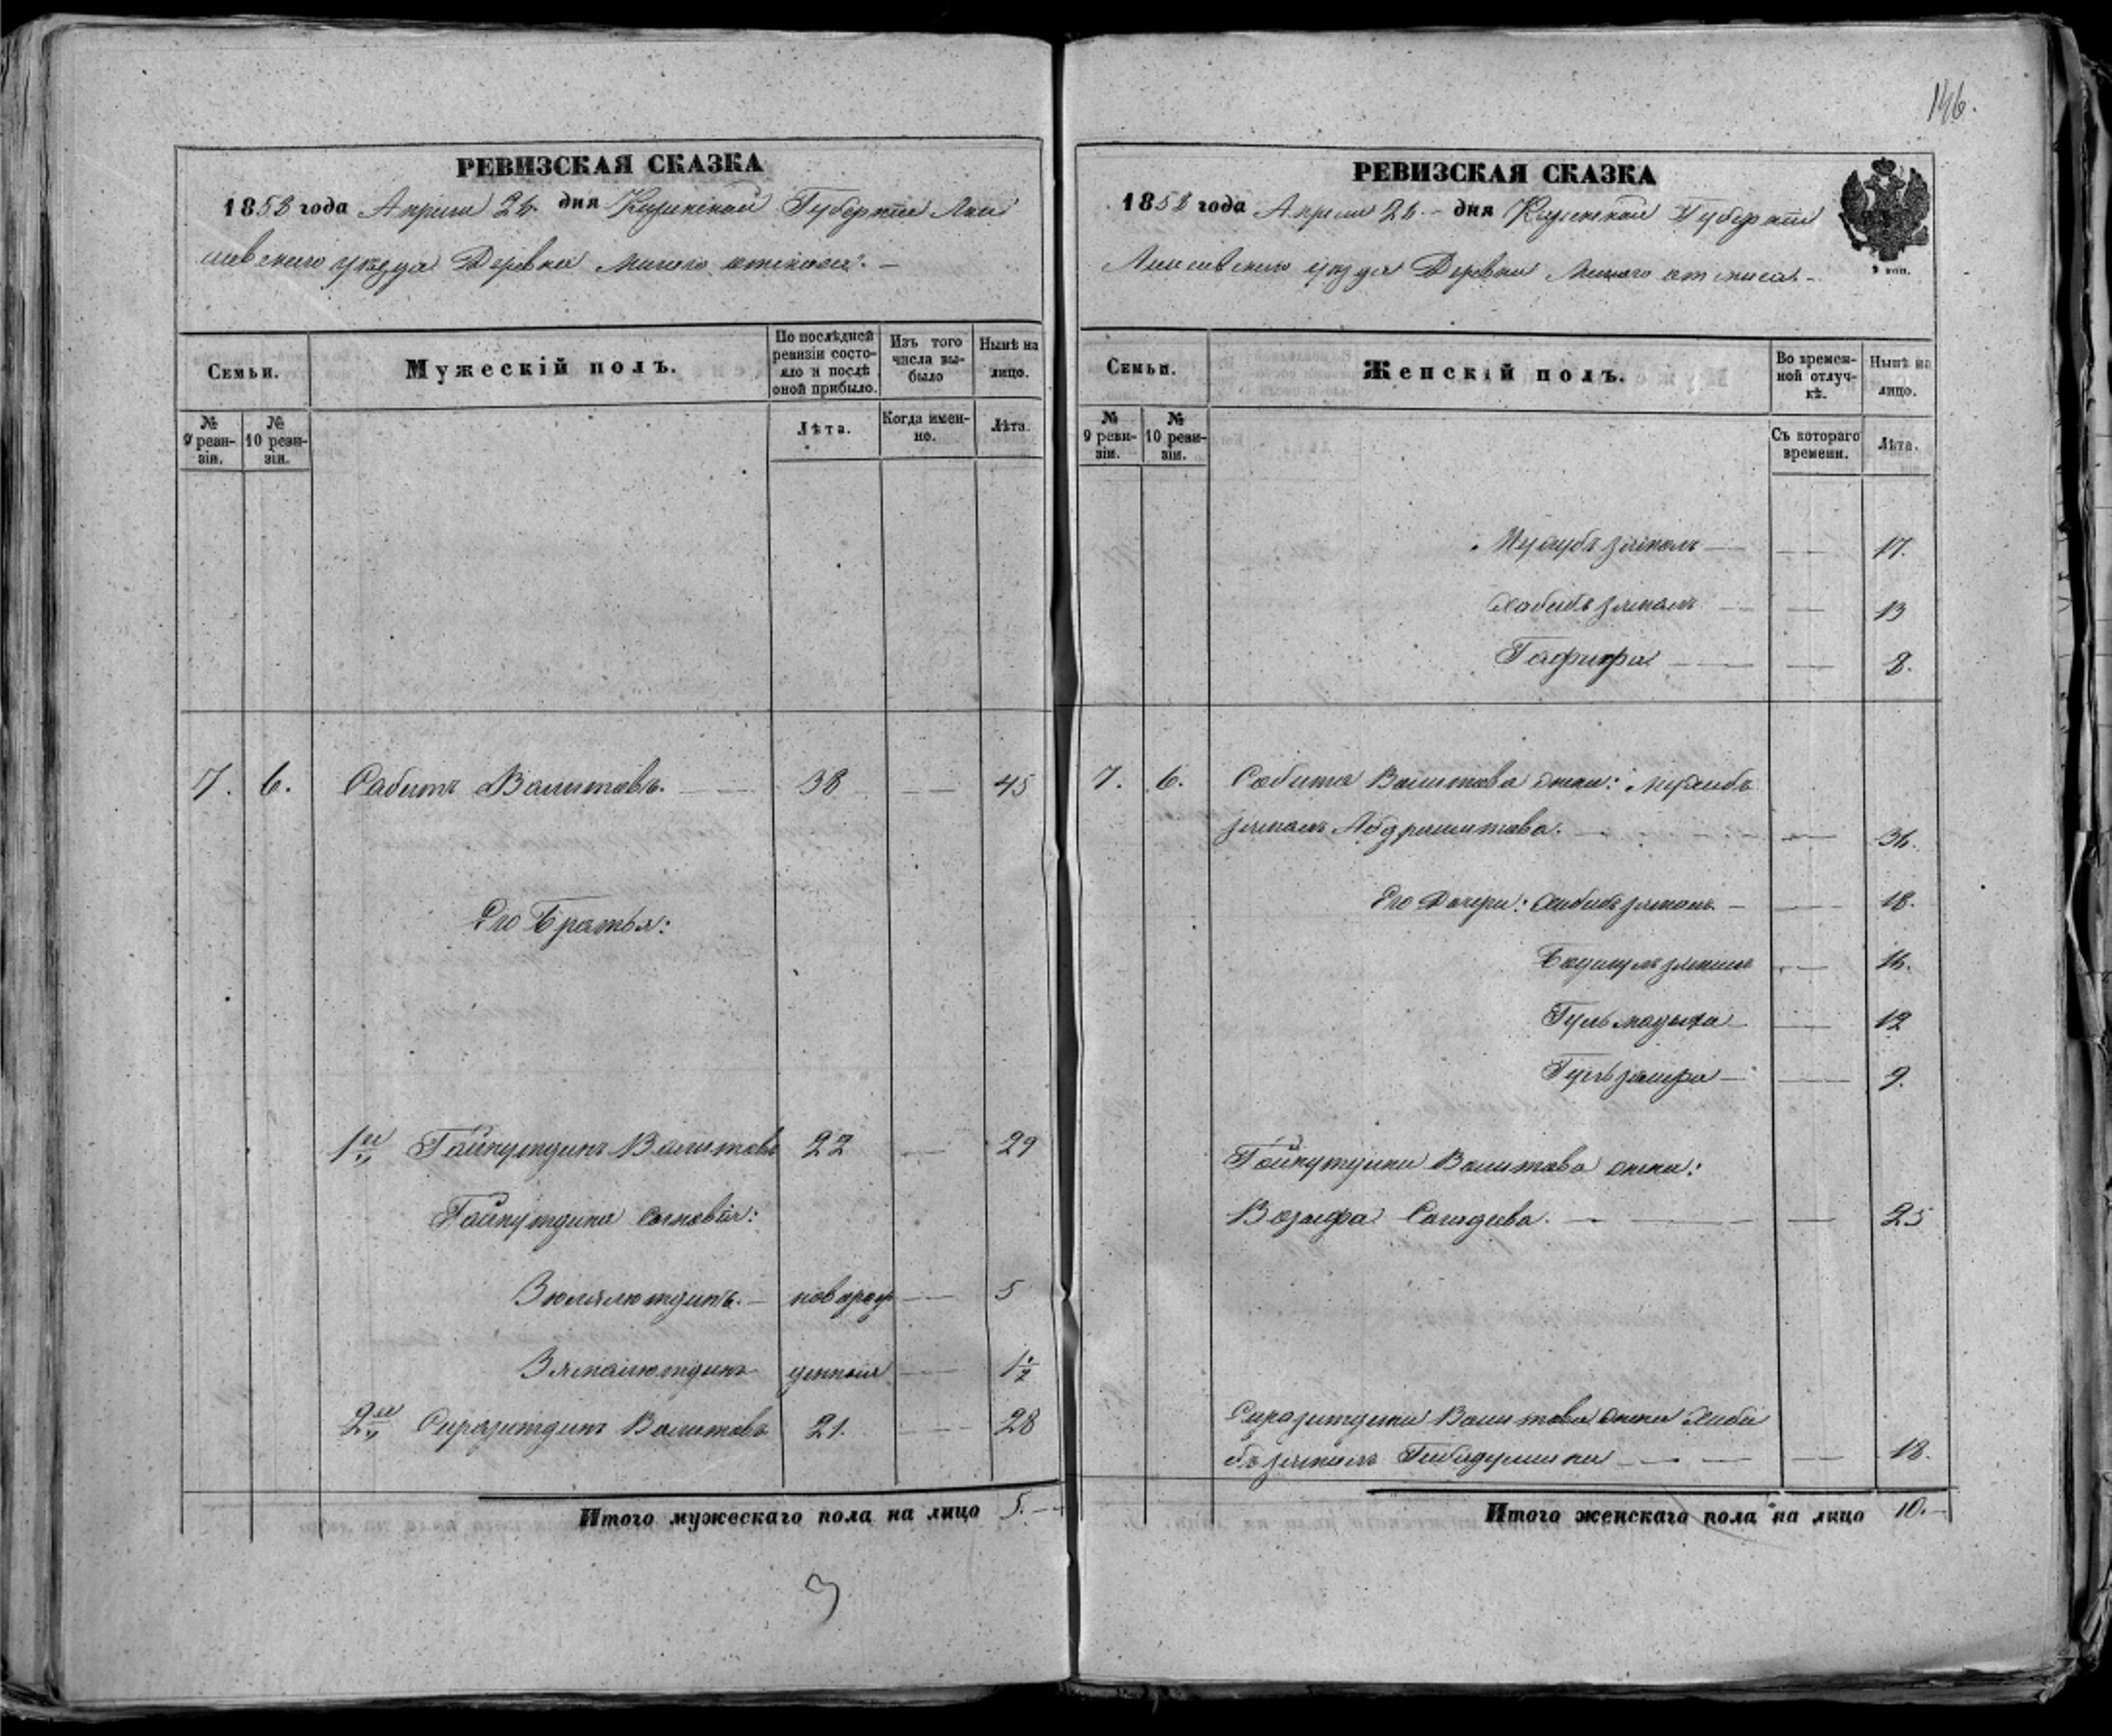 146.
РЕВИЗСКАЯ СКАЗКА
1858 года Апреля 26. дня Казанской Губернии Лаи
шевского уезда Деревни Малого
Семьи.
Мужескій полъ.
По послѣдней ревизіи состояло и послѣ оной прибыло.
Изъ того числа выбыло
Нынѣ на лицо.
№ 9 ревизіи.
№ 10 ревизіи.
Лѣта.
Когда именно.
Лѣта.
7. 6. Сабитъ Валитовъ. 38 45
Его Братья:
1й Гайнутдинъ Валитовъ 22 29
Гайнутдина сыновья:
Зюлялютдинъ. новорож 5
денныя
2й Сиразитдинъ Валитовъ 21. 28
Итого мужескаго пола на лицо 5.
3
РЕВИЗСКАЯ СКАЗКА
1858 года Апреля 26. дня Казанской Губернии
Лаишевского уезда Деревни Малого
2 коп.
Семьи.
Женскій полъ.
Во временной отлучкѣ.
Нынѣ на лицо.
№ 9 ревизіи.
№ 10 ревизіи.
Съ котораго времени.
Лѣта.
17.
Хабибъ земалъ 13
Гафифа 8.
7. 6. Сабита Валитова жена: Мухибъ
земалъ Абдрашитова. 36.
Его Дочери: Хабибъ земалъ 18.
16.
12
9.
Гайнутдина Валитова жена:
Вазифа Сагадеева. 25
Сиразитдина Валитова жена Хаби
бъ земалъ Гибадуллина 18.
Итого женскаго пола на лицо 10.